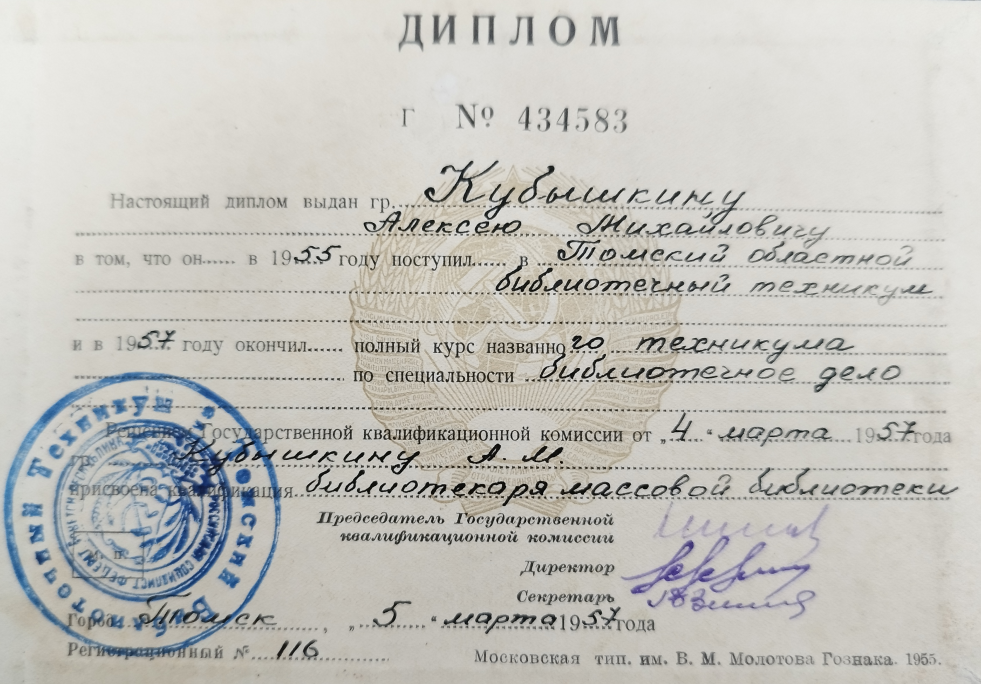 ДИПЛОМ
Г № 434583
Настоящий диплом выдан гр. Кубышкину
Алексею Михайловичу
в том, что он...... в 1955 году поступил...... в Томский областной
библиотечный техникум
и в 1957 году окончил...... полный курс названного техникума
по специальности библиотечное дело
Решением Государственной квалификационной комиссии от „4“ марта 1957 года
гр. Кубышкину А. М.
присвоена квалификация библиотекаря массовой библиотеки
Председатель Государственной
квалификационной комиссии
Директор
Секретарь
Город Томск, „5“ марта 1957 года
Регистрационный № 116
Московская тип. им. В. М. Молотова Гознака. 1955.